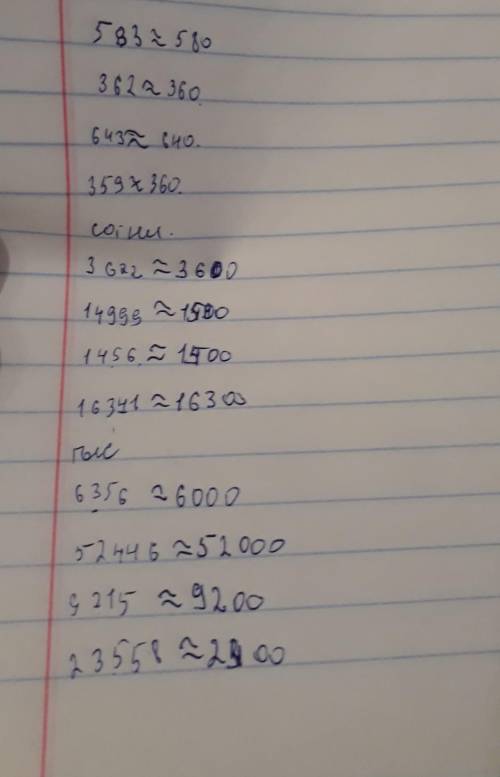 583≈580
362≈360.
643≈640.
359≈360.
сотни.
3622≈3600
14999≈1500
1456≈1400
16341≈16300
тыс
6356≈6000
52446≈52000
9215≈9200
23558≈2400